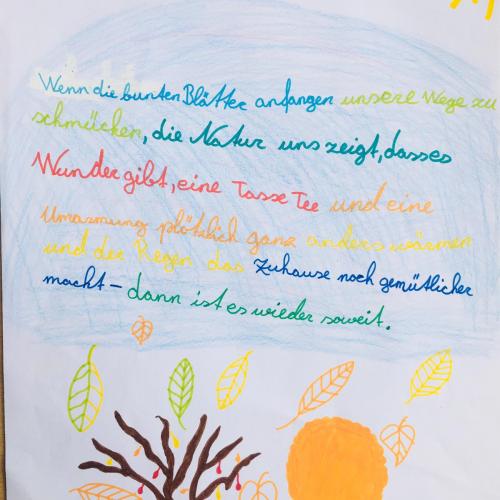 Wenn die bunten Blätter anfangen unsere Wege zu
schmücken, die Natur uns zeigt, dass es
Wunder gibt, eine Tasse Tee und eine
Umarmung plötzlich ganz anders wärmen
und der Regen das Zuhause noch gemütlicher
macht - dann ist es wieder soweit.